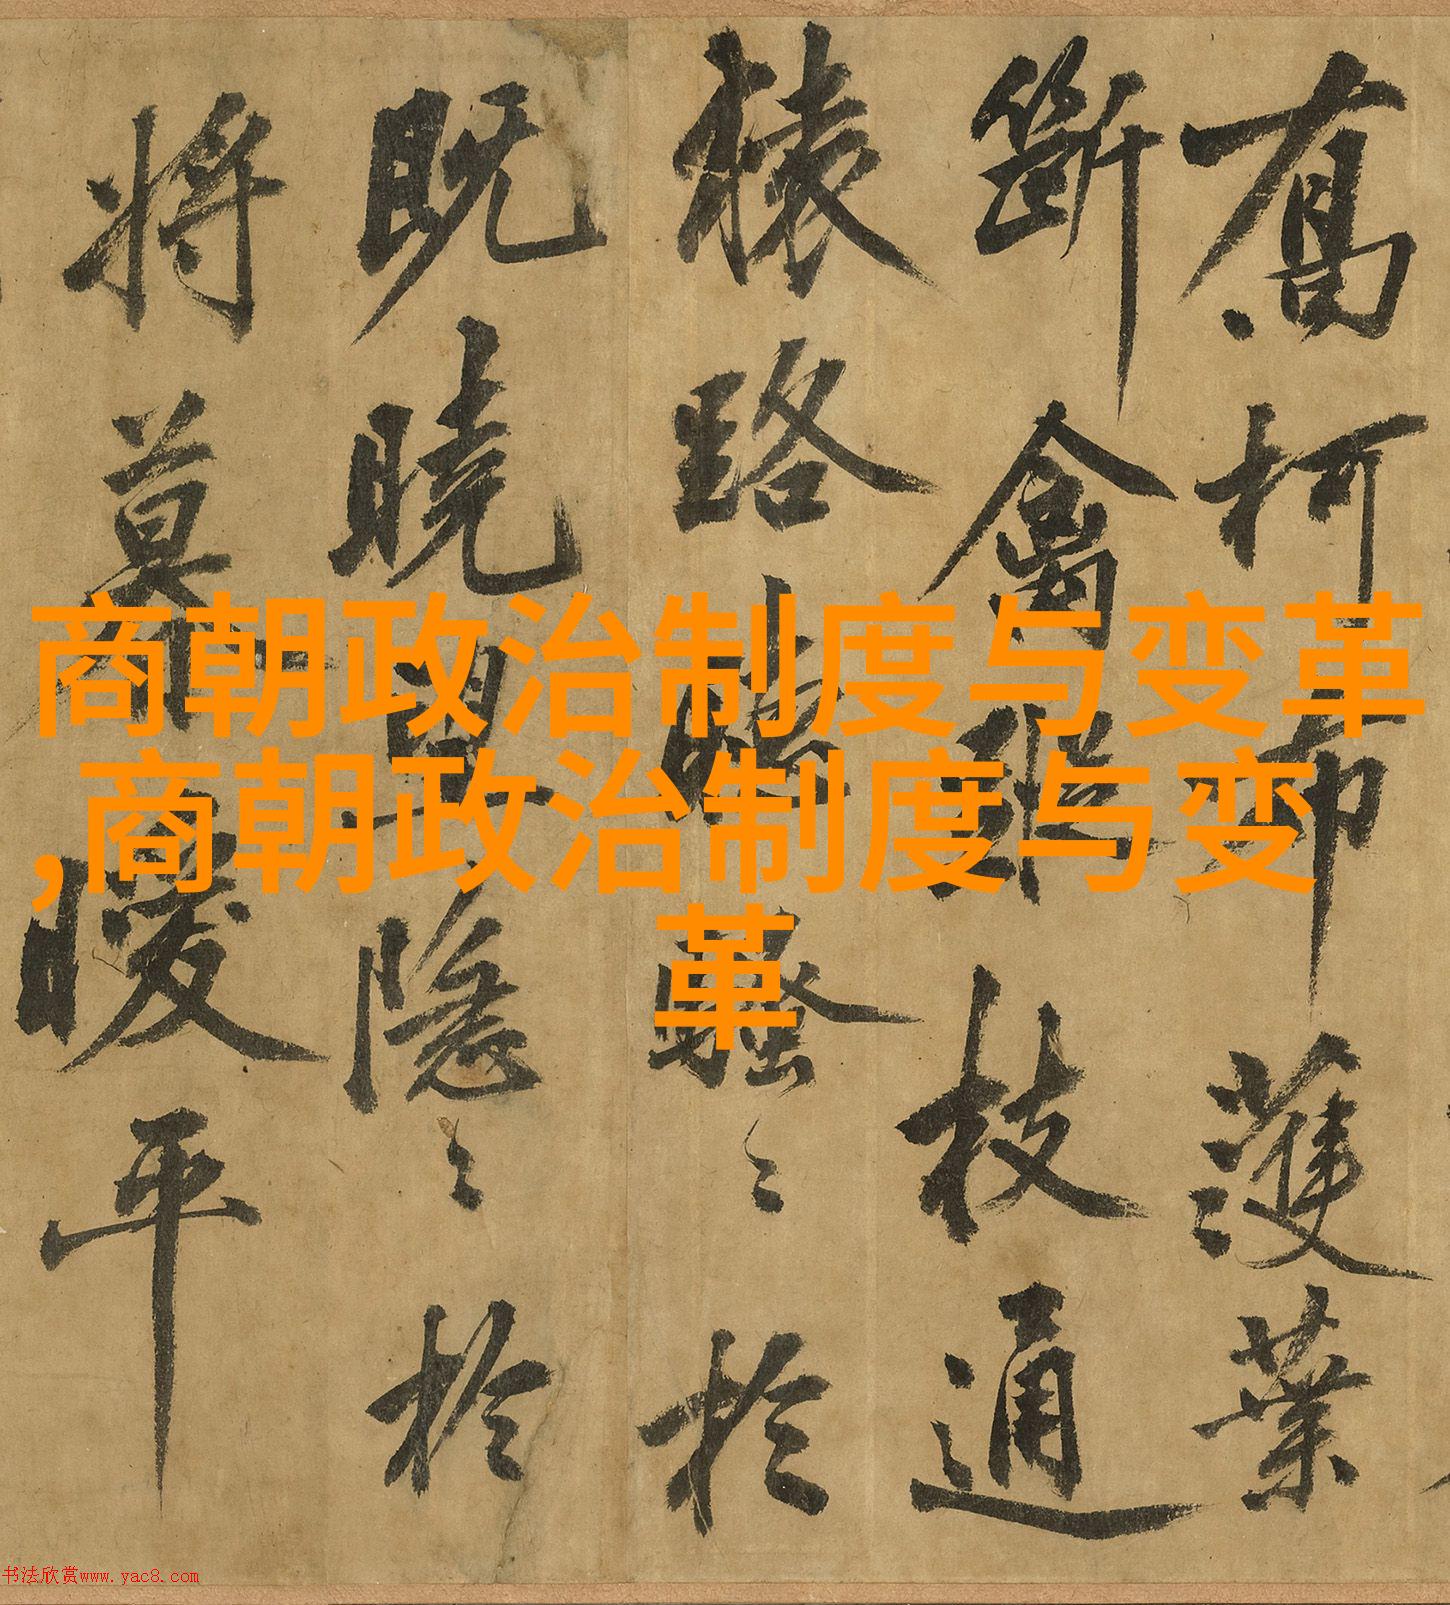 喬柯布濩葉
斷禽枝通
猿路騷〻於
既曉望隱〻於
將暮曖平
商朝政治制度与变革
,商朝政治制度与变
革
书法欣赏www.yac8.com